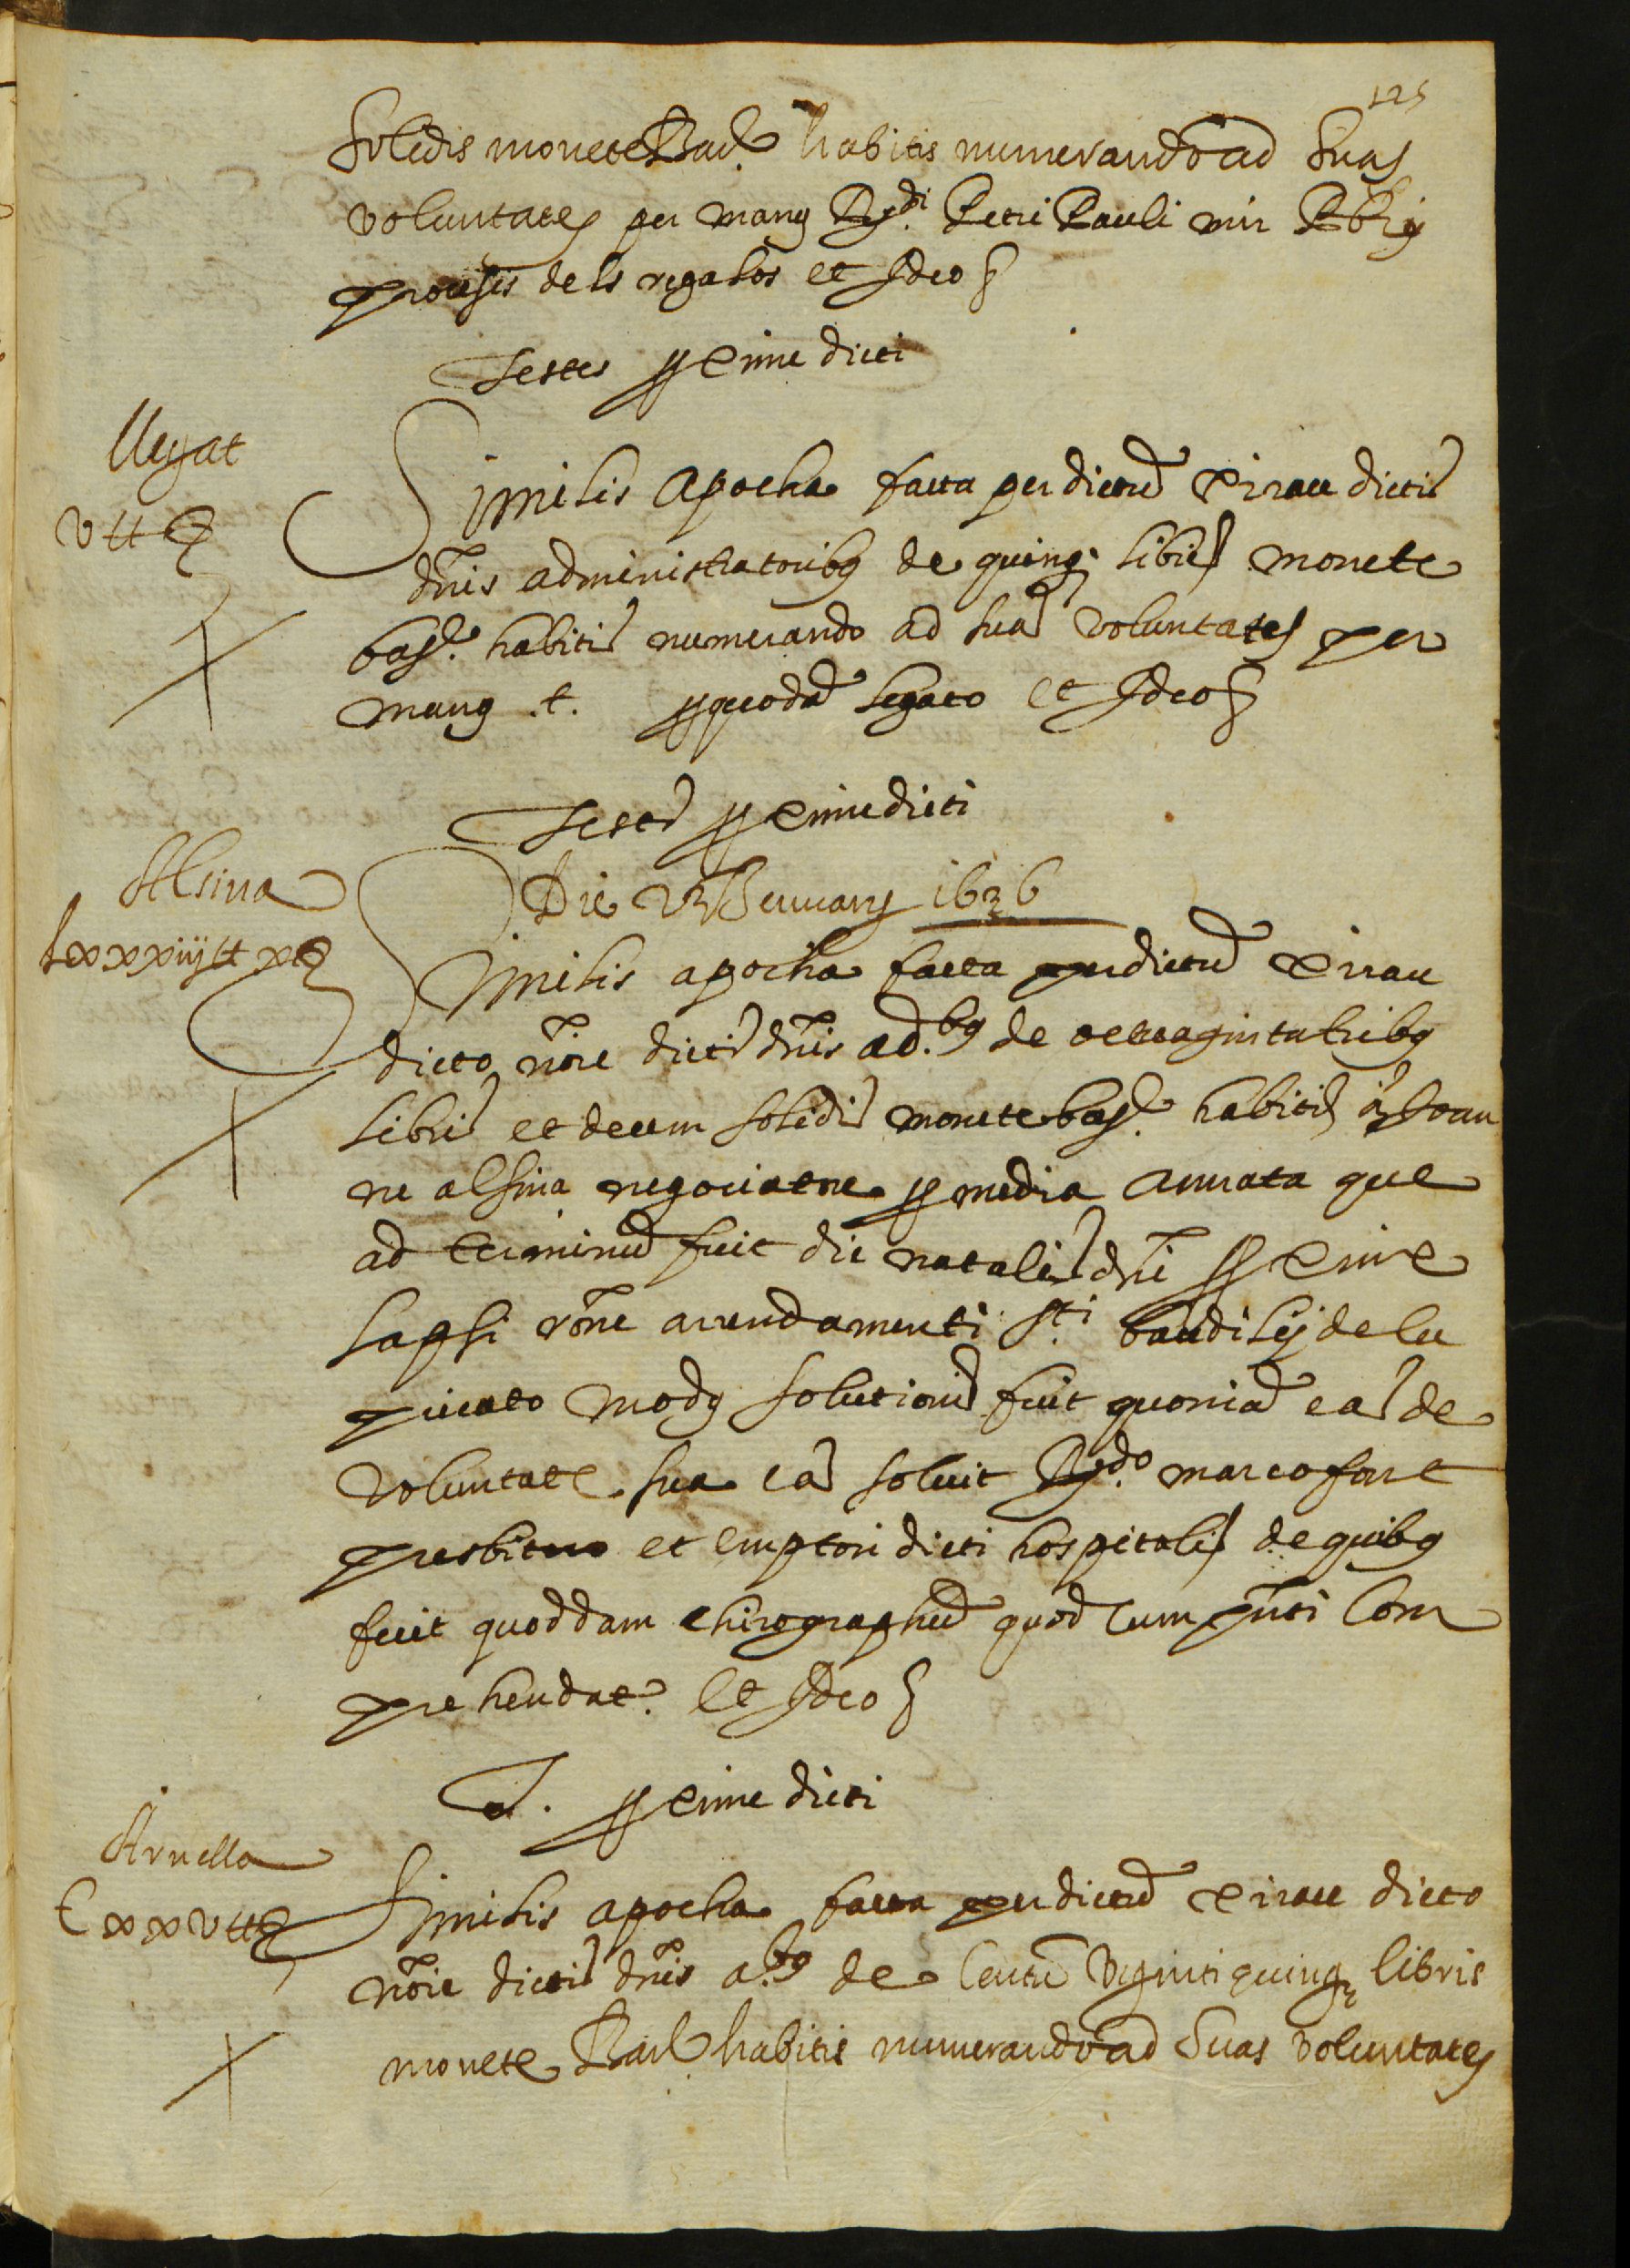 125
Solidis monete Bar.ᵉ habitis numerando ad Suas
voluntates per manꝯ R.ᵈⁱ Petri Pauli mir Pbrj
procesis dels regalos et Ideo &
Testes pxime dicti
Llegat
v ₶ &
Similis apocha facta per dictũ Pirau dictis
dñis administratoribꝯ de quinqꝫ libris monete
bar.ᵉ habitis numerando ad suas voluntates per
manꝯ .t. p quodã legato et Ideo &
Testes pxime dicti
Alsina
Lxxxiij ₶ x &
Die 22 Jennarij 1636
Similis apocha facta per dictũ Pirau
dicto nõie dictis dñis ad.ᵇꝯ de octuagintatribꝯ
libris et decem solidis monete bar.ᵉ habitis a Joan
ne alsina negociatore p media annata que
ad terminũ fuit die natalis dñi pxime
lapsi rõne arrendamenti s.ᵗⁱ baudilij de lu
pricato modꝯ solutionis fuit quoniã eas de
voluntate sua eas soluit R.ᵈᵒ marco font
presbitero et emptori dicti hospitalis de quibꝯ
fuit quoddam chirographũ quod cum pñti Com
prehendat.ʳ et Ideo &
T. pxime dicti
Arnella
Cxxv ₶ &
Similis apocha facta per dictũ Pirau dicto
nõie dictis dñis a.ᵇꝯ de Centũ viginti quinqꝫ libris
monete Bar.ᵉ habitis numerando ad Suas voluntates